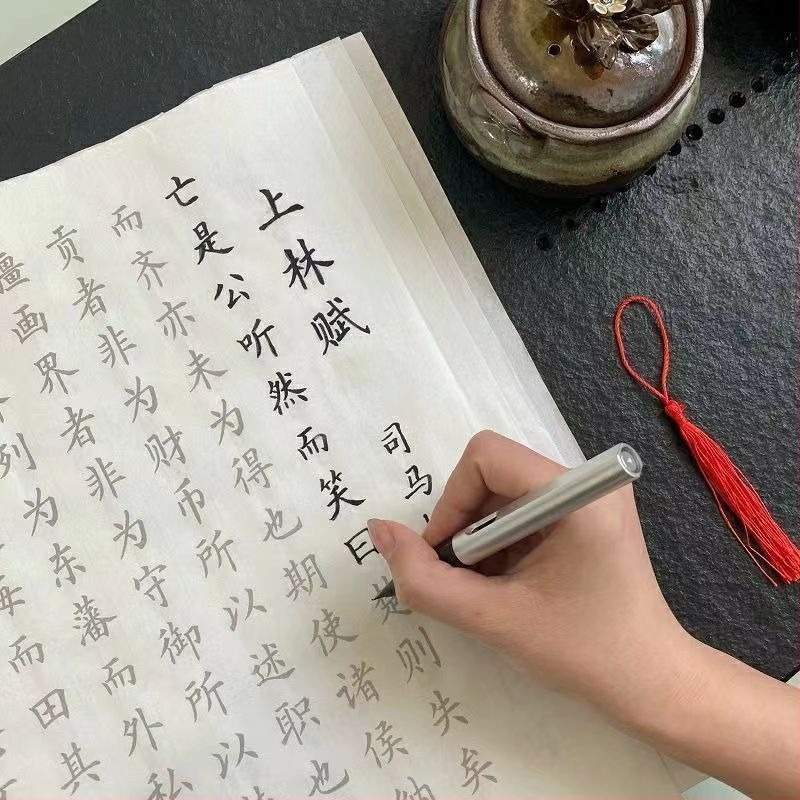 上林赋
司马
亡是公听然而笑曰楚则失矣
而齐亦未为得也期使诸侯纳
贡者非为财币所以述职也
疆画界者非为守御所以
列为东藩而外私
海而田其